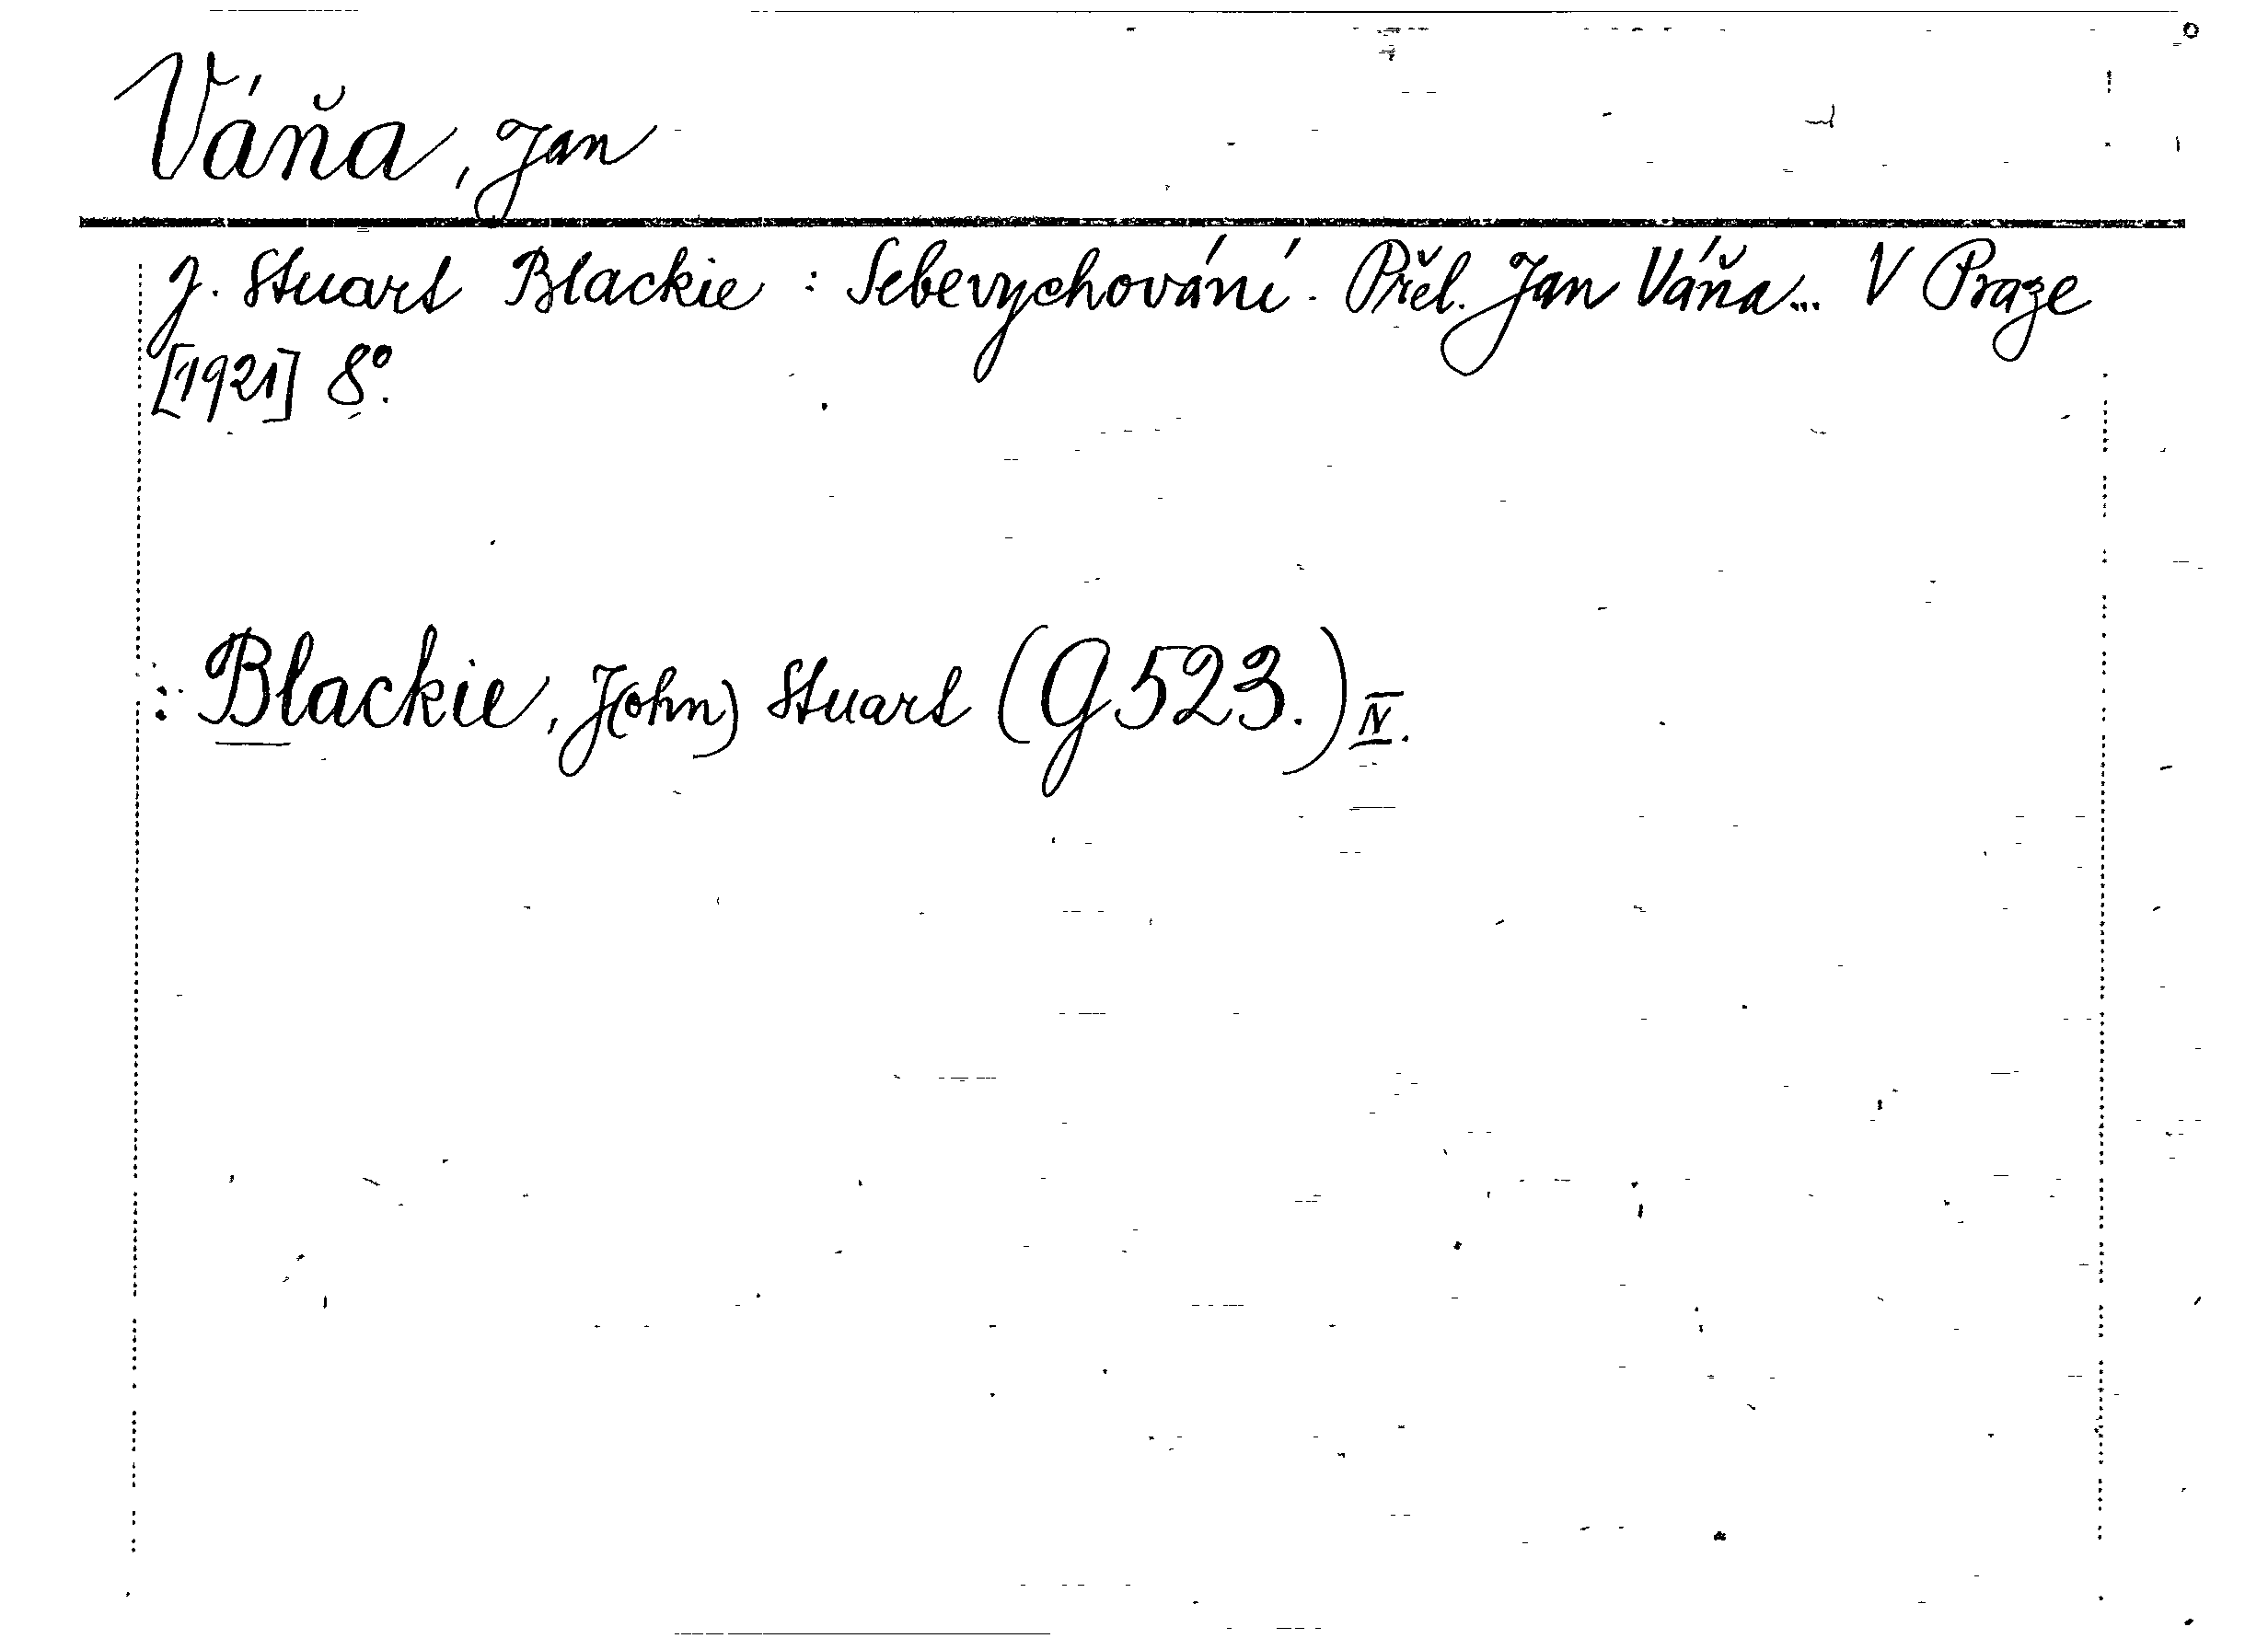 Váňa, Jan
J. Stuart Blackie: Sebevychování. Přel. Jan Váňa... V Praze
[1921] 8º.
: Blackie, J(ohn) Stuart (G 523.) IV.